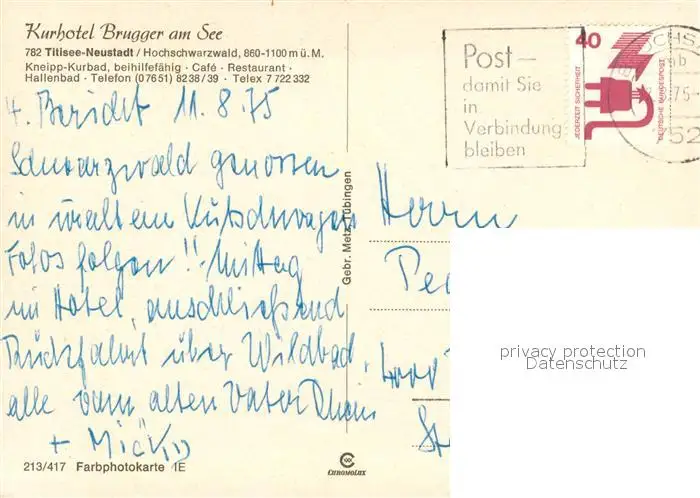 Kurhotel Brugger am See
782 Titisee-Neustadt / Hochschwarzwald, 860-1100 m ü. M.
Kneipp-Kurbad, beihilfefähig · Café · Restaurant ·
Hallenbad · Telefon (07651) 8238/39 · Telex 7 722 332
4. Bericht 11.8.75
Schwarzwald genossen
in uraltem Kutschwagen
Fotos folgen!! Mittag
im Hotel, anschließend
Rückfahrt über Wildbad,
alle vom alten Vater Rhein
213/417 Farbphotokarte IE
Gebr. Metz, Tübingen
CHROMOLUX
Post –
damit Sie
in
Verbindung
bleiben
40
JEDERZEIT SICHERHEIT
DEUTSCHE BUNDESPOST
Herrn
privacy protection
Datenschutz